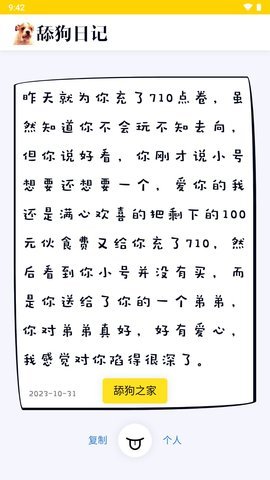 9:42
舔狗日记
昨天就为你充了710点卷，虽
然知道你不会玩不知去向，
但你说好看，你刚才说小号
想要还想要一个，爱你的我
还是满心欢喜的把剩下的100
元伙食费又给你充了710，然
后看到你小号并没有买，而
是你送给了你的一个弟弟，
你对弟弟真好，好有爱心，
我感觉对你陷得很深了。
2023-10-31
舔狗之家
复制
个人